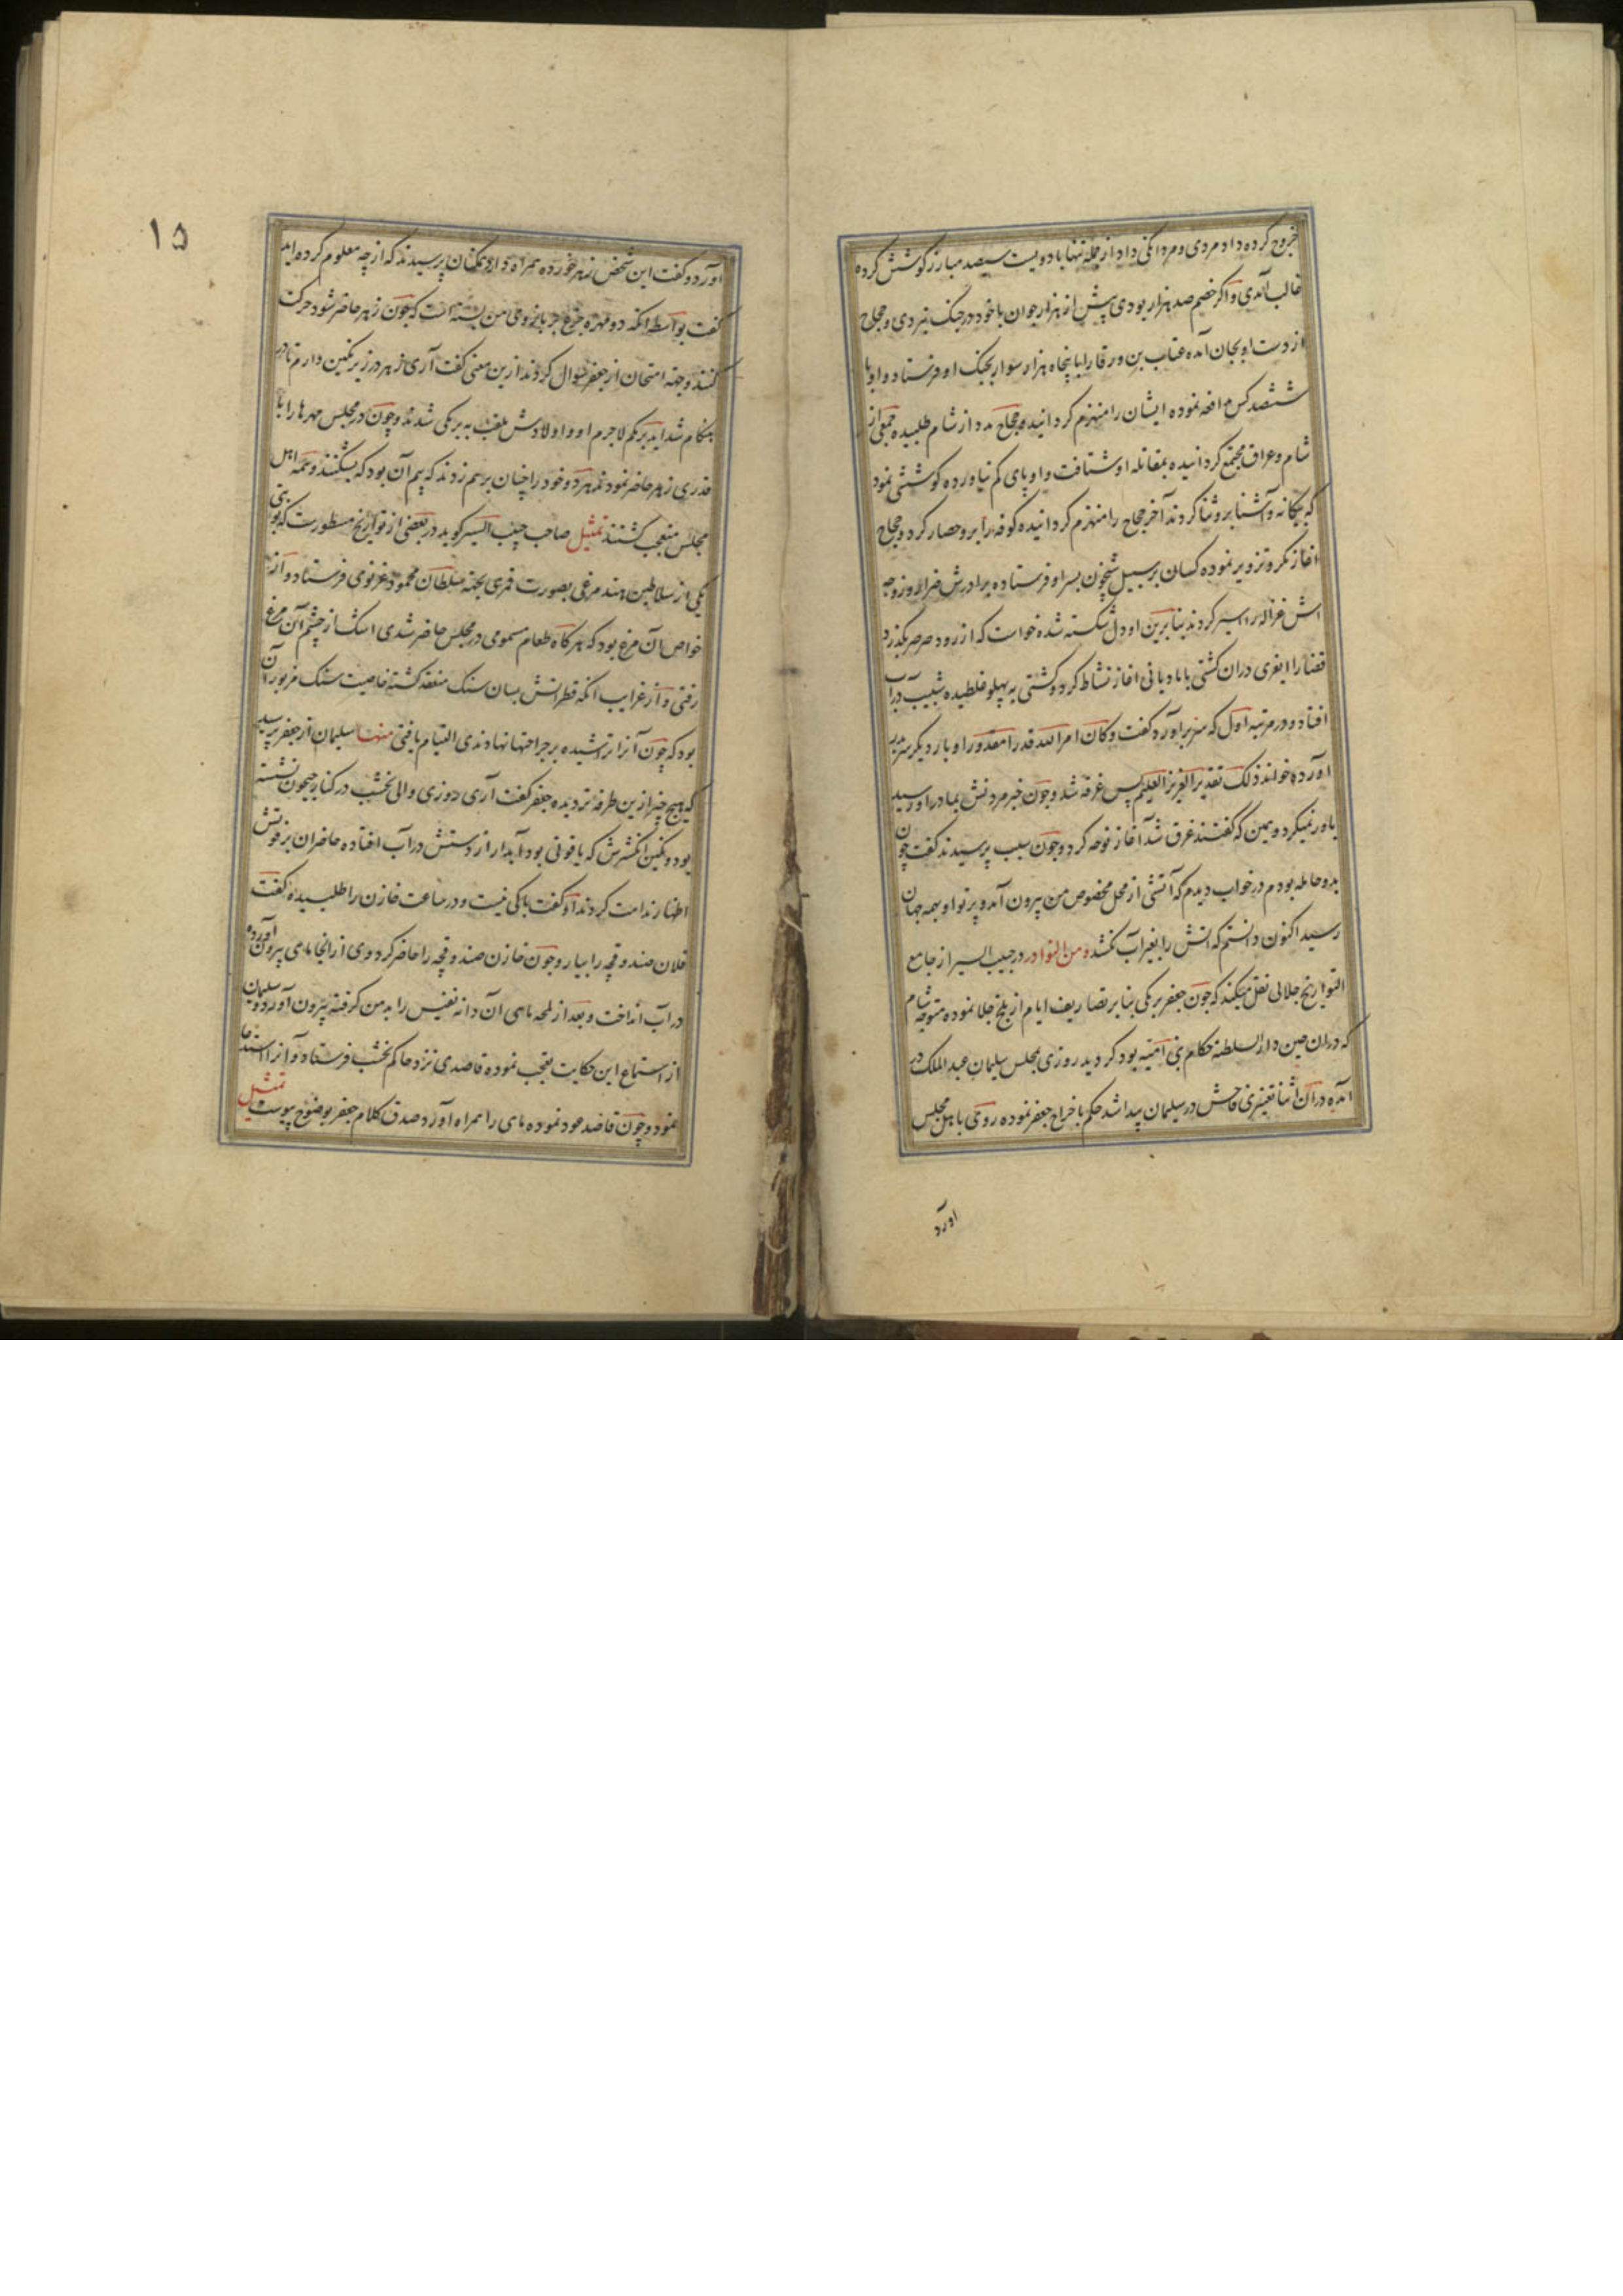 خروج کرده داد مردی و مردانکی داد از جمله تنها با دویست سیصد مبارز کوشش کرده
غالب آمدی و اکر خصم صد هزار بودی پیش از هزار جوان با خود در جنک نبردی و حجاج
از دست او بجان آمده عتاب بن ورقا را با پنجاه هزار سوار بجنک او فرستاد و او با
ششصد کس مدافعه نموده ایشان را منهزم کردانید و حجاج مدد از شام طلبیده جمعی از
شام و عراق مجتمع کردانیده بمقابله او شتافت و او پای کم نیاورده کوششی نمود
که بیکانه و آشنا برو ثنا کردند آخر حجاج را منهزم کردانیده کوفه را برو حصار کرد و حجاج
اغاز مکر و تزویر نموده کسان بر سبیل شبخون بسر او فرستاده برادرش را و زوجه
اش غزاله را اسیر کردند بنابرین او دل شکسته شده خواست که از رود صرصر بکذرد
قضا را ابغری دران کشتی با مادیانی اغاز نشاط کرد و کشتی به پهلو غلطیده شبیب در آب
افتاد و در مرتبه اول که سر براورد کفت و کان امر الله قدرا مقدورا و بار دیکر سر بر
آورده خواند ذلک تقدیر العزیز العلیم پس غرقه شد و چون خبر مردنش بمادر او رسید
باور نمیکرد و همین که کفتند غرق شد آغاز نوحه کرد و چون سبب پرسیدند کفت چون
بدو حامله بودم در خواب دیدم که آتشی از محل مخصوص من بیرون آمد و پرتو او بهمه جهان
رسید اکنون دانستم که اتش را بغیر آب نکشد و من النوادر در حبیب السیر از جامع
التواریخ جلالی نقل میکند که چون جعفر برمکی بنا بر تصاریف ایام از بلخ جلا نموده متوجه شام
که دران حین دار السلطنه حکام بنی امیه بود کردید روزی بمجلس سلیمان عبد الملک در
آمده دران اثنا تغییری فاحش در سلیمان پیدا شد حکم باخراج جعفر نموده روی باهل مجلس
اورد
۱۵
آورد و کفت این شخص زهر خورده همراه دارد همکنان پرسیدند که از چه معلوم کرده اید
کفت بواسطه انکه دو مهره جزع بر بازوی من بسته است که چون زهر حاضر شود حرکت
کنند و جهة امتحان از جعفر سوال کردند ازین معنی کفت آری زهر در زیر نکین دارم تا در
هنکام شداید برمکم لاجرم او و اولادش ملقب به برمکی شدند و چون در مجلس مهرها را با
قدری زهر حاضر نمودند هر دو خود را چنان برهم زدند که بیم آن بود که بشکنند و همه اهل
مجلس متعجب کشتند تمثیل صاحب حبیب السیر کوید در بعضی از تواریخ مسطورست که نوبتی
یکی از سلاطین هند مرغی بصورت قمری بجهة سلطان محمود غزنوی فرستاد و از
خواص آن مرغ بود که هر کاه طعام مسمومی در مجلس حاضر شدی اشک از چشم آن مرغ
رفتی و از غرایب انکه قطراتش بسان سنک منعقد کشته خاصیت سنک مزبور آن
بود که چون آنرا تراشیده بر جراحتها نهادندی التیام یافتی منها سلیمان از جعفر پرسید
که هیچ چیز ازین طرفه تر دیده جعفر کفت آری روزی والی نخشب در کنار جیحون نشسته
بود و نکین انکشترش که یاقوتی بود آبدار از دستش در آب افتاده حاضران بر فوتش
اظهار ندامت کردند او کفت باکی نیست و در ساعت خازن را طلبیده کفت
فلان صندوقچه را بیار و چون خازن صندوقچه را حاضر کرد وی از انجا ماهی بیرون آورده
در آب انداخت و بعد از لمحه ماهی آن دانه نفیس را بدهن کرفته بیرون آورد و سلیمان
از استماع این حکایت تعجب نموده قاصدی نزد حاکم نخشب فرستاد و آنرا استدعا
نمود و چون قاصد عود نموده ماهی را همراه آورد صدق کلام جعفر بوضوح پیوست تمثیل